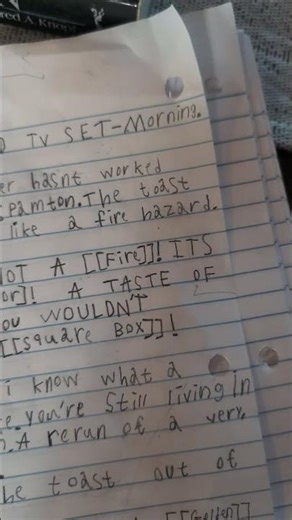 red A. Knopf
TV SET-Morning.
er hasnt worked
pamton. The toast
like a fire hazard.
OT A [[Fire]]! ITS
or]! A TASTE OF
OU WOULDN'T
[[Square BOX]]!
i know what a
e. you're still living in
. A rerun of a very
he toast out of
[[Golden]]